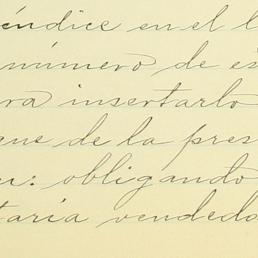 éndice en el l
número de es
ra insertarlo
que de la pres
n: obligando
taria vendedo